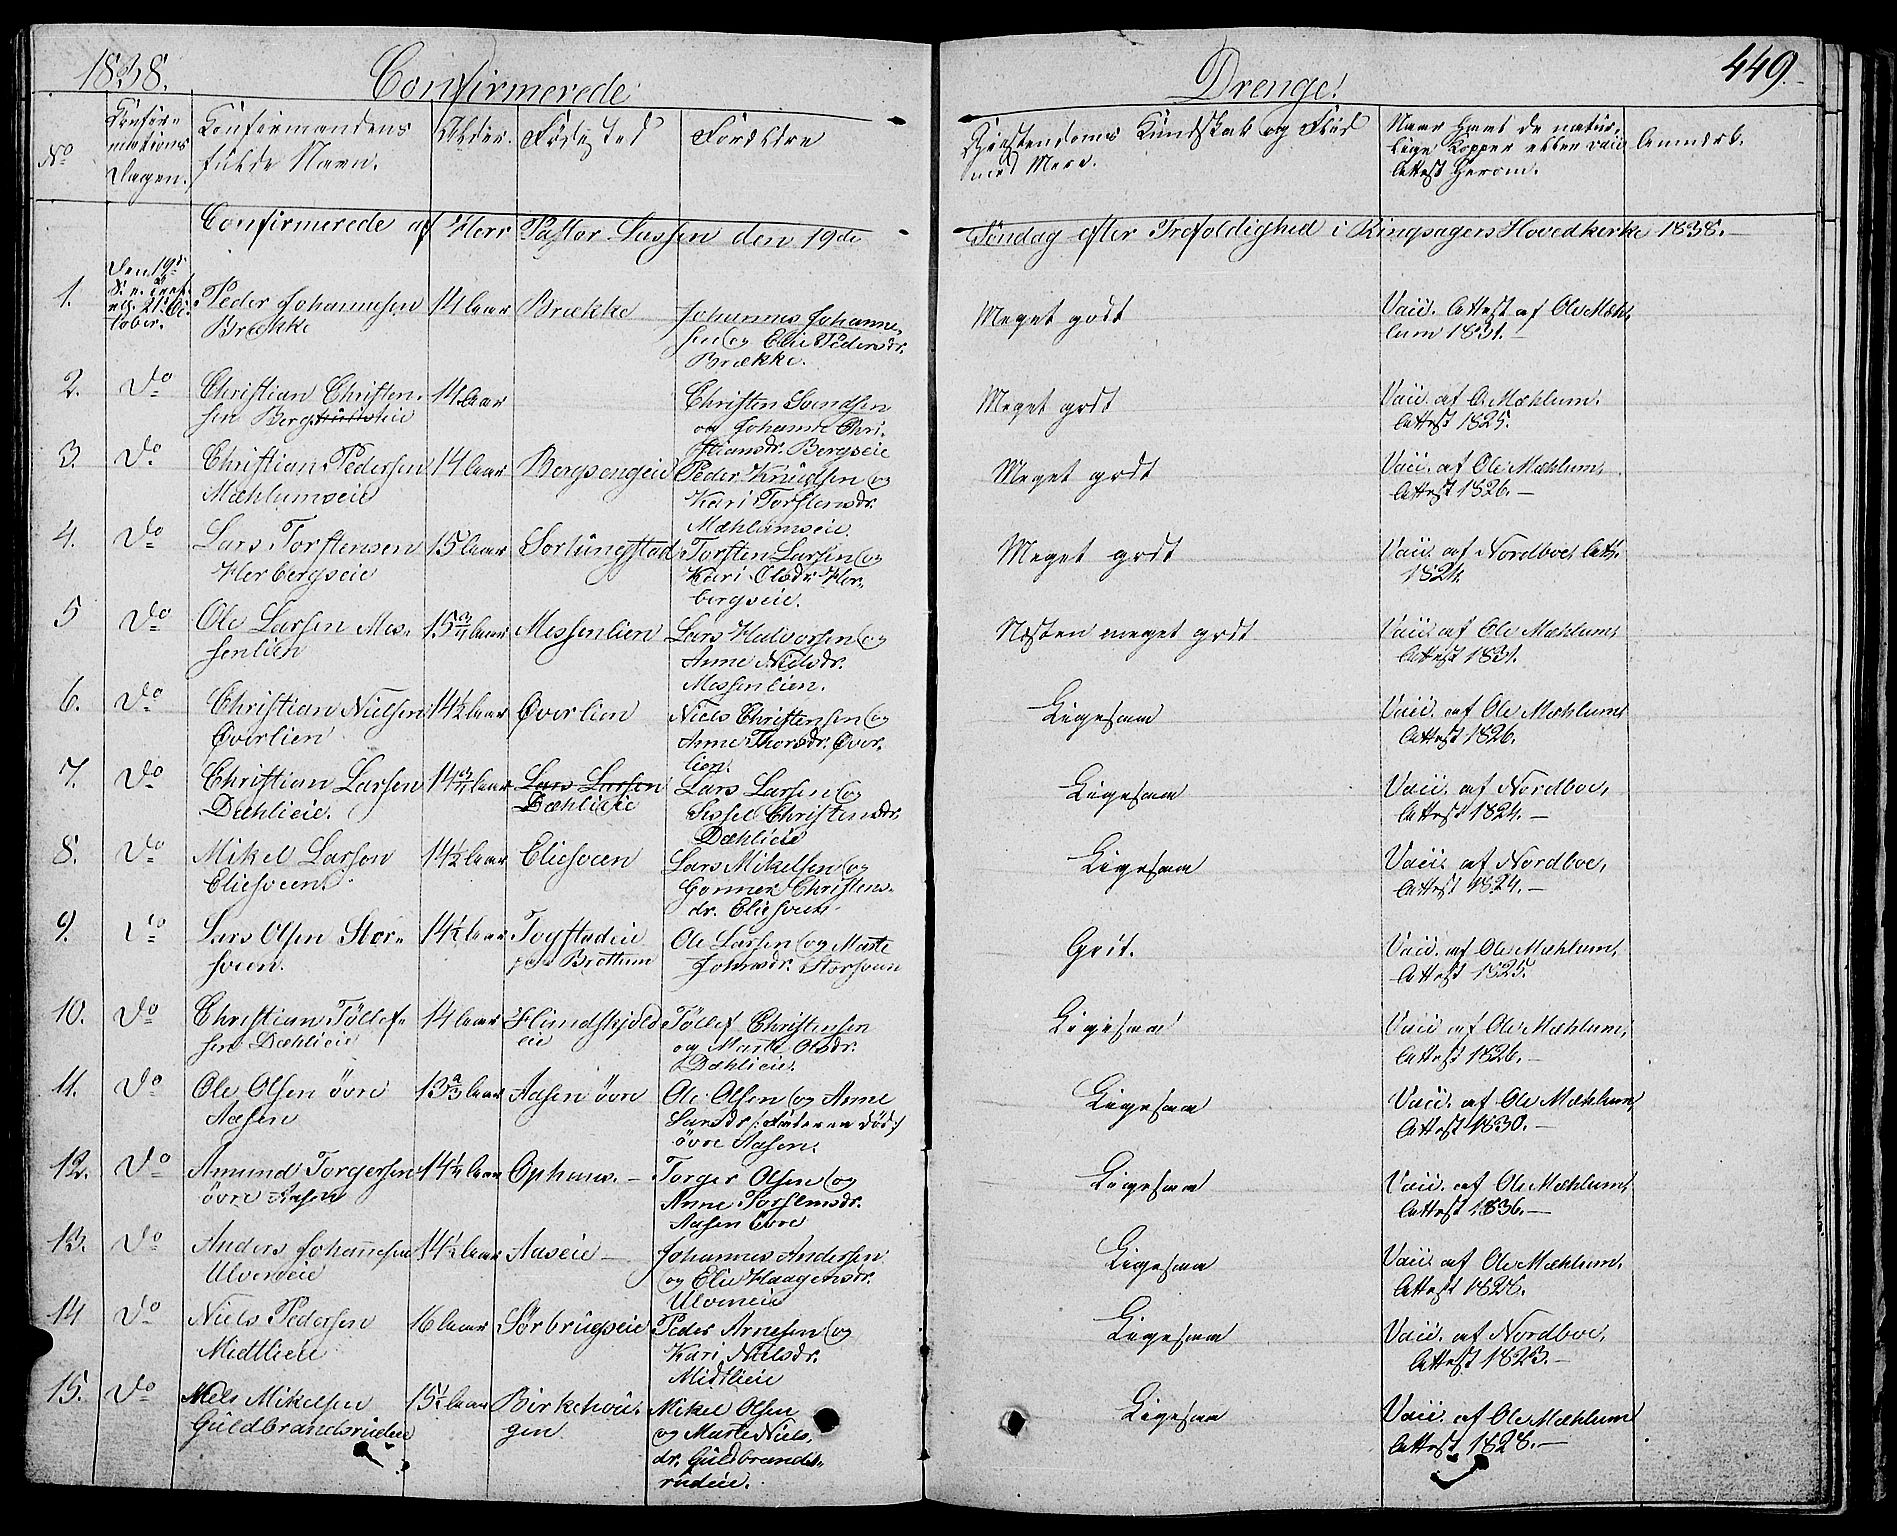 1838. Confirmerede Drenge! 449.
No
Confir-
mations
Dagen.
Confirmandens
fulde Navn.
Alder.
Fødested
Forældre
Christendoms Kundskab og Flid
med Mere.
Naar havt de natur-
lige Kopper eller vacc.
Attest herom.
Anmærk.
Confirmerede af Herr Pastor Lassen den 19de Søndag efter Trefoldighed i Ringsagers Hovedkerke 1838.
1. Den 19de
S. e. Tref.
21. Oc-
tober.
Peder Johannesen
Brække
14 Aar
Brække
Johannes Johanne-
sen og Elie Pedersdr.
Brække.
Meget godt
Vacc. Attest af Ole Mæh-
lum 1831.
2. Do
Christian Christen-
sen Bergseie
14 Aar
Christen Svendsen
og Johanne Chri-
stiansdr. Bergseie
Meget godt
Vacc. af O. Mæhlum.
Attest 1825.
3. Do
Christian Pedersen
Mæhlumseie
14 Aar
Bergsengeie
Peder Knudsen og
Kari Torstensdr.
Mæhlumseie.
Meget godt
Vacc. af Ole Mæhlum,
Attest 1826.
4. Do
Lars Torstensen
Herbergseie
15 Aar
Sorlungstad
Torsten Larsen og
Kari Olsdr. Her-
bergseie.
Meget godt
Vacc. af Nordboe, Att.
1824.
5 Do
Ole Larsen Mes-
senlien
15 3/4 Aar
Messenlien
Lars Halvorsen og
Anne Nielsdr.
Messenlien.
Næsten meget godt
Vacc. af Ole Mæhlum,
Attest 1831.
6. Do
Christian Nielsen
Øverlien
14 1/2 Aar
Øverlien
Niels Christensen og
Anne Thorsdr. Øver-
lien.
Ligesaa
Vacc. af Ole Mæhlum,
Attest 1826.
7. Do
Christian Larsen
Dæhlieie.
14 3/4 Aar
Lars Larsen
Dæhlieie
Lars Larsen og
Sissel Christensdr.
Dæhlieie
Ligesaa
Vacc. af Nordboe,
Attest 1824.
8. Do
Mikel Larsen
Eliesveen.
14 1/2 Aar
Eliesveen
Lars Mikelsen og
Gonner Christens-
dr. Eliesveen.
Ligesaa
Vacc. af Nordboe,
Attest 1824.
9. Do
Lars Olsen Stor-
sveen.
14 1/2 Aar
Togstadeie
paa Brøttum
Ole Larsen og Marte
Johnsdr. Storsveen
Godt.
Vacc. af Ole Mæhlum,
Attest 1825.
10. Do
Christian Tøllef-
sen Dæhlieie
14 Aar
Hundskjold
eie
Tøllef Christensen
og Marte Olsdr.
Dæhlieie.
Ligesaa
Vacc af Ole Mæhlum,
Attest 1826.
11. Do
Ole Olsen øvre
Aasen
13 2/3 Aar
Aasen øvre
Ole Olsen og Anne
Larsdr /: Faderen død:/
øvre Aasen.
Ligesaa
Vacc. af Ole Mæhlum,
Attest 1830.
12. Do
Amund Torgersen
øvre Aasen
14 1/4 Aar
Ophuus.
Torger Olsen og
Anne Torstensdr.
Aasen Øvre
Ligesaa
Vacc. af Ole Mæhlum,
Attest 1836.
13. Do
Anders Johannesen
Ulveneie
14 1/2 Aar
Aaseie
Johannes Andersen
og Elie Haagensdr.
Ulveneie
Ligesaa
Vacc. af Ole Mæhlum,
Attest 1828.
14 Do
Niels Pedersen
Midtlieie
16 Aar
Sørbrugseie
Peder Arnesen og
Kari Nielsdr.
Midtlieie
Ligesaa
Vacc. af Nordboe,
Attest 1823.
15. Do
Niels Mikelsen
Guldbrandsrudeie
15 1/2 Aar
Birkehau-
gen
Mikel Olsen
og Marte Niels-
dr. Guldbrands-
rudeie.
Ligesaa
Vacc. af Ole Mæhlum
Attest 1828.